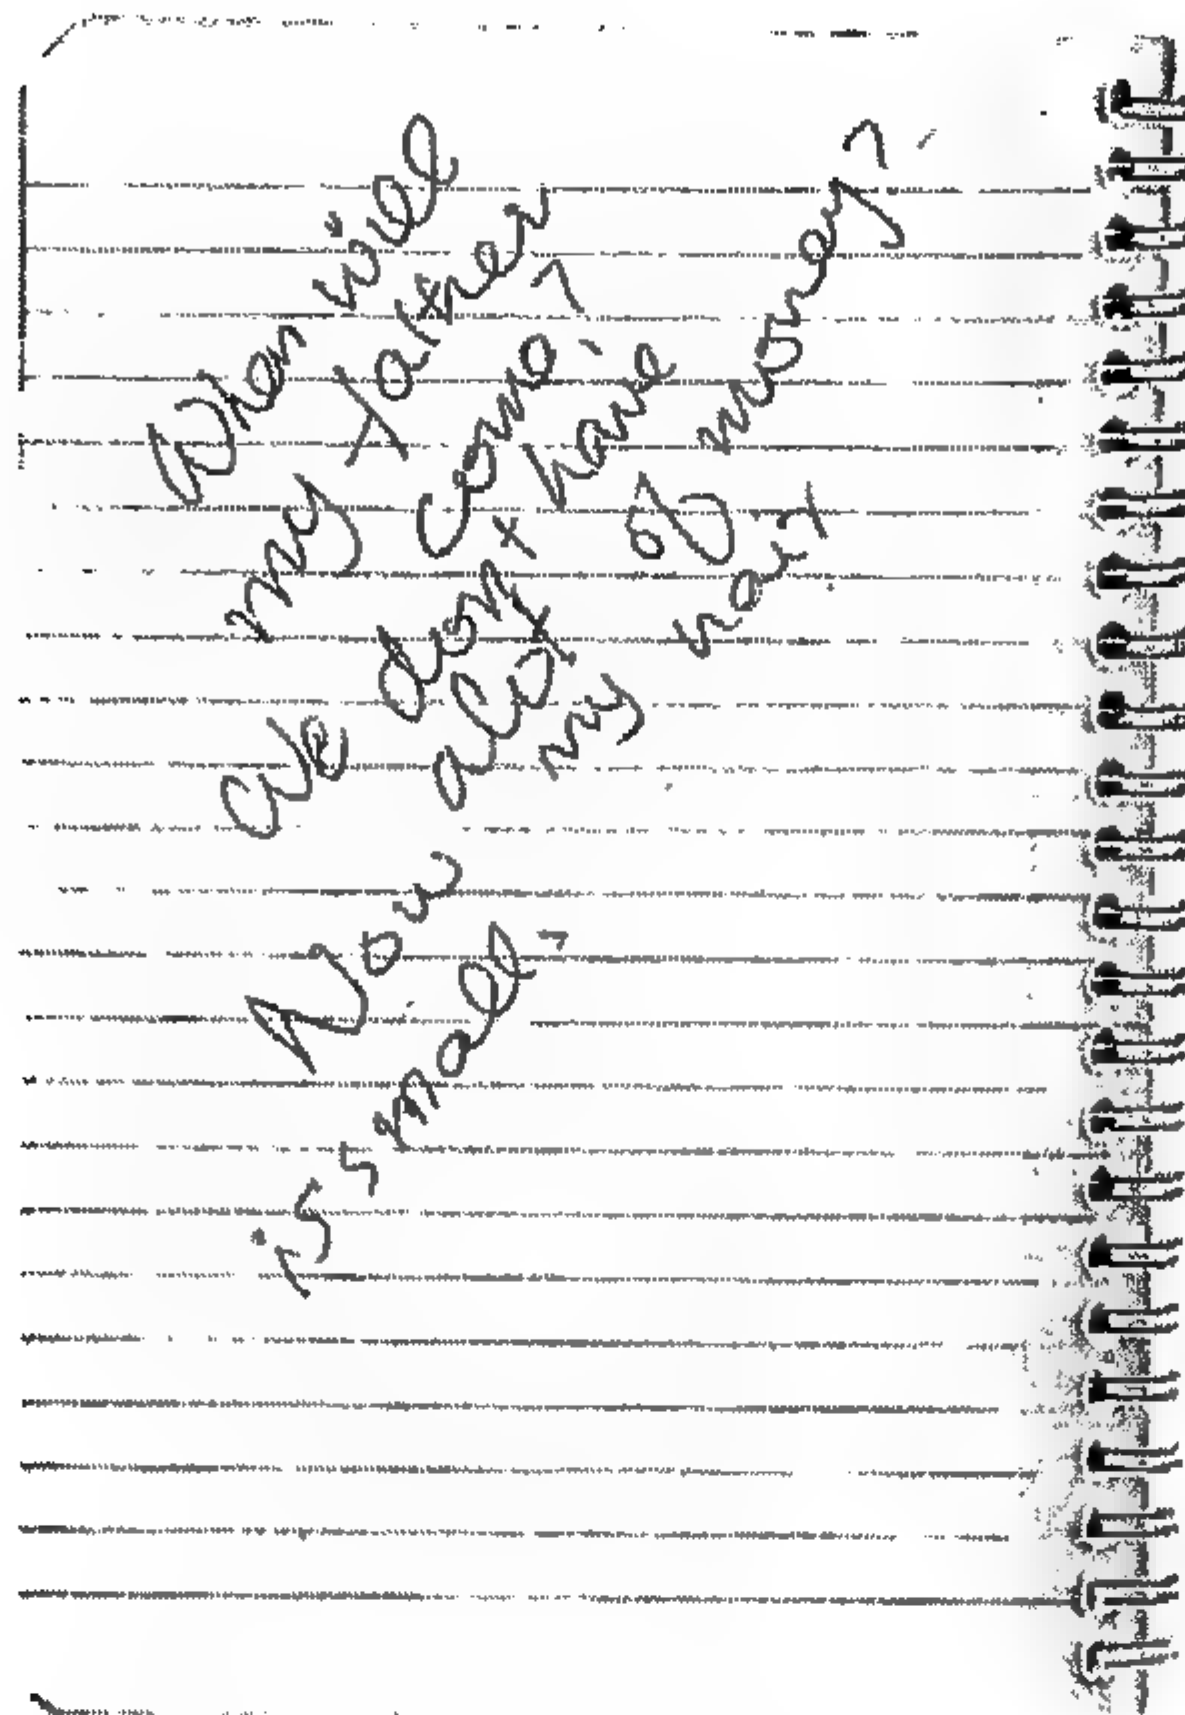 When will
my father
come?
We dont have
a lot of money?
Now my
is small